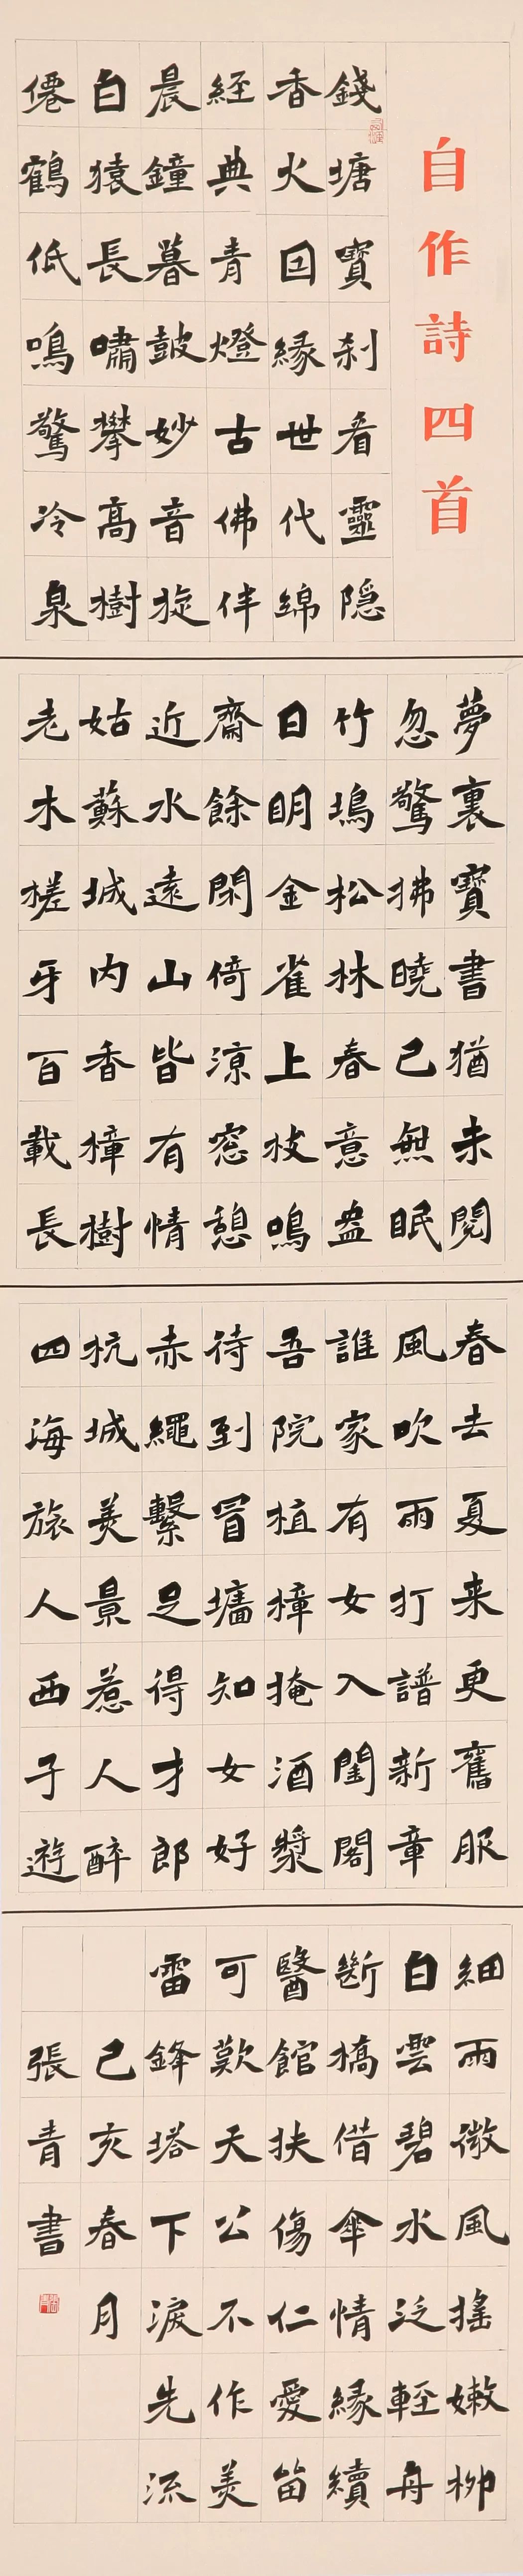 自作詩四首
錢塘寶刹看靈隱
香火因緣世代綿
經典青燈古佛伴
晨鐘暮鼓妙音旋
白猿長嘯攀高樹
僊鶴低鳴驚冷泉
夢裏寶書猶未閱
忽驚拂曉已無眠
竹塢松林春意盎
日明金雀上枝鳴
齋餘閑倚涼窓憩
近水遠山皆有情
姑蘇城内香樟樹
老木槎牙百載長
春去夏来更舊服
風吹雨打譜新章
誰家有女入閨閣
吾院植樟掩酒漿
待到冒墻知女好
赤繩繫足得才郎
杭城美景惹人醉
四海旅人西子遊
細雨微風搖嫩柳
白雲碧水泛輕舟
斷橋借傘情緣續
醫館扶傷仁愛留
可歎天公不作美
雷鋒塔下淚先流
己亥春月
張青書